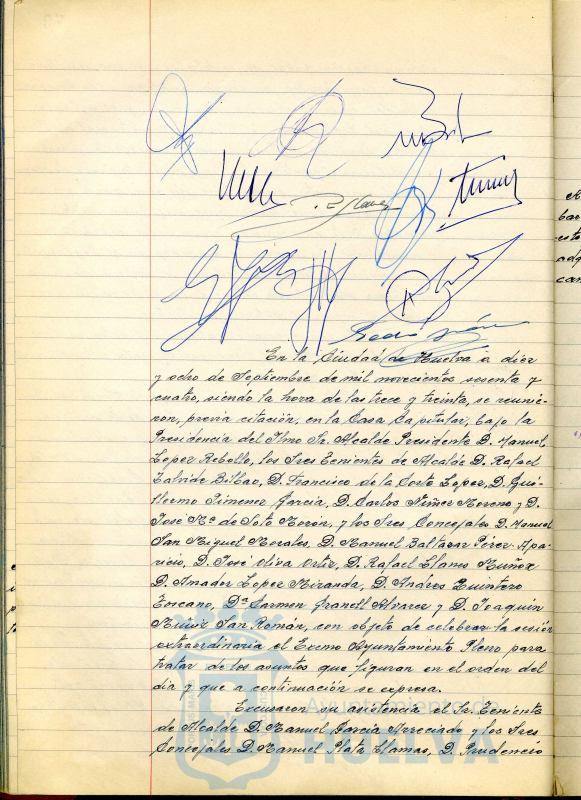 En la Ciudad de Huelva a diez
y ocho de Septiembre de mil novecientos sesenta y
cuatro, siendo la hora de las trece y treinta, se reunie-
ron, previa citación, en la Casa Capitular, bajo la
Presidencia del Ilmo Sr. Alcalde Presidente D. Manuel
Lopez Rebollo, los Sres Tenientes de Alcalde D. Rafael
Bilbao, D. Francisco de la Corte Lopez, D. Gui-
llermo Jimenez García, D. Carlos Núñez Moreno y D.
José Mª de Soto Morón, y los Sres Concejales D. Manuel
San Miguel Morales, D. Manuel Baltasar Pérez Apa-
ricio, D. José Oliva Ortiz, D. Rafael Llanes Muñoz
D. Amador Lopez Miranda, D. Andres Quintero
Toscano, Dª Carmen Alvarez y D. Joaquin
Muñiz San Román, con objeto de celebrar la sesión
extraordinaria el Excmo Ayuntamiento Pleno para
tratar de los asuntos que figuran en el orden del
dia y que a continuación se expresa.
Excusaron su asistencia el Sr. Teniente
de Alcalde D. Manuel García y los Sres
Concejales D. Manuel Plata Llamas, D. Prudencio
Ayuntamiento de
HUELVA